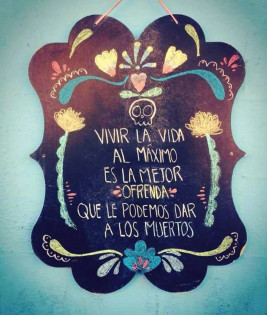 VIVIR LA VIDA
AL MÁXIMO
ES LA MEJOR
OFRENDA
QUE LE PODEMOS DAR
A LOS MUERTOS